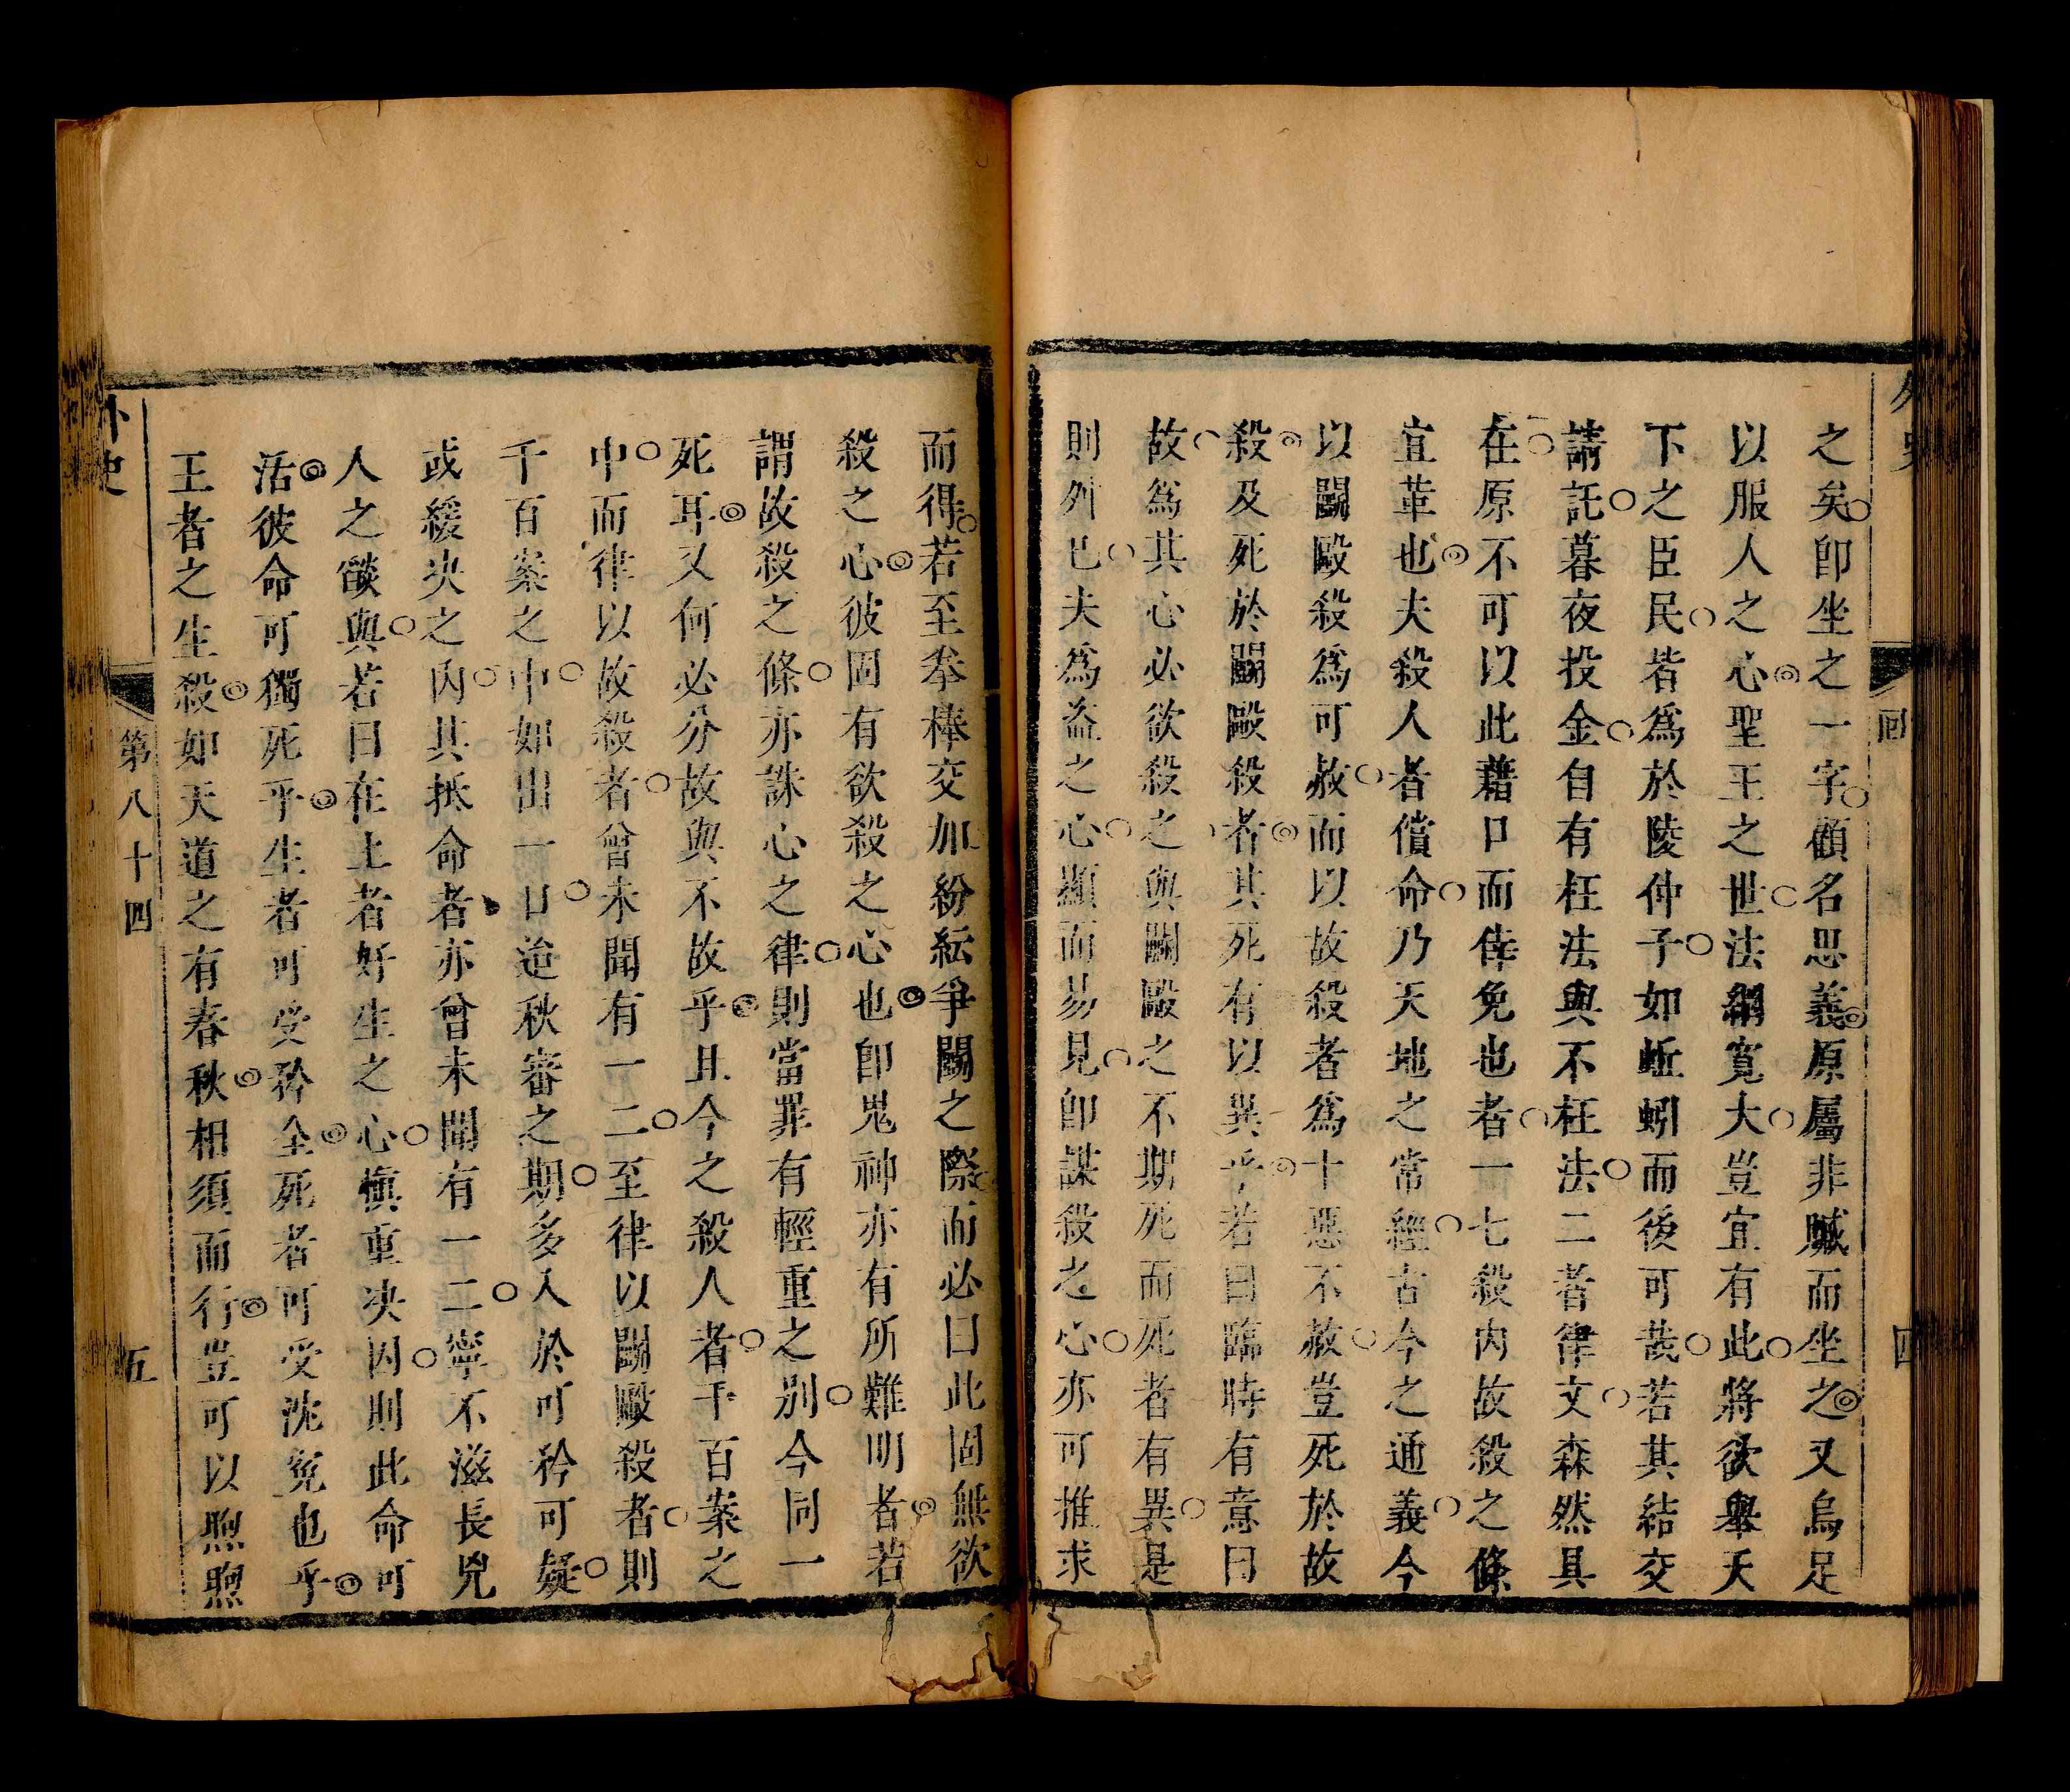 外史
回
四
之矣卽坐之一字顧名思義原屬非贓而坐之又烏足
以服人之心聖王之世法網寬大豈宜有此將欲舉天
下之臣民皆爲於陵仲子如蚯蚓而後可哉若其結交
請託暮夜投金自有枉法與不枉法二者律文森然具
在原不可以此藉口而倖免也者一七殺內故殺之條
宜革也夫殺人者償命乃天地之常經古今之通義今
以鬭毆殺爲可赦而以故殺者爲十惡不赦豈死於故
殺及死於鬭毆殺者其死有以異乎若曰臨時有意曰
故爲其心必欲殺之與鬭毆之不期死而死者有異是
則舛已夫爲盜之心顯而易見卽謀殺之心亦可推求
而得若至拳棒交加紛紜爭鬭之際而必曰此固無欲
殺之心彼固有欲殺之心也卽鬼神亦有所難明者若
謂故殺之條亦誅心之律則當罪有輕重之別今同一
死耳又何必分故與不故乎且今之殺人者千百案之
中而律以故殺者曾未聞有一二至律以鬭毆殺者則
千百案之中如出一口迨秋審之期多入於可矜可疑
或緩決之內其抵命者亦曾未聞有一二寧不滋長兇
人之燄與若曰在上者好生之心愼重決囚則此命可
活彼命可獨死乎生者可受矜全死者可受沈冤也乎
王者之生殺如天道之有春秋相須而行豈可以煦煦
外史
第八十四
五